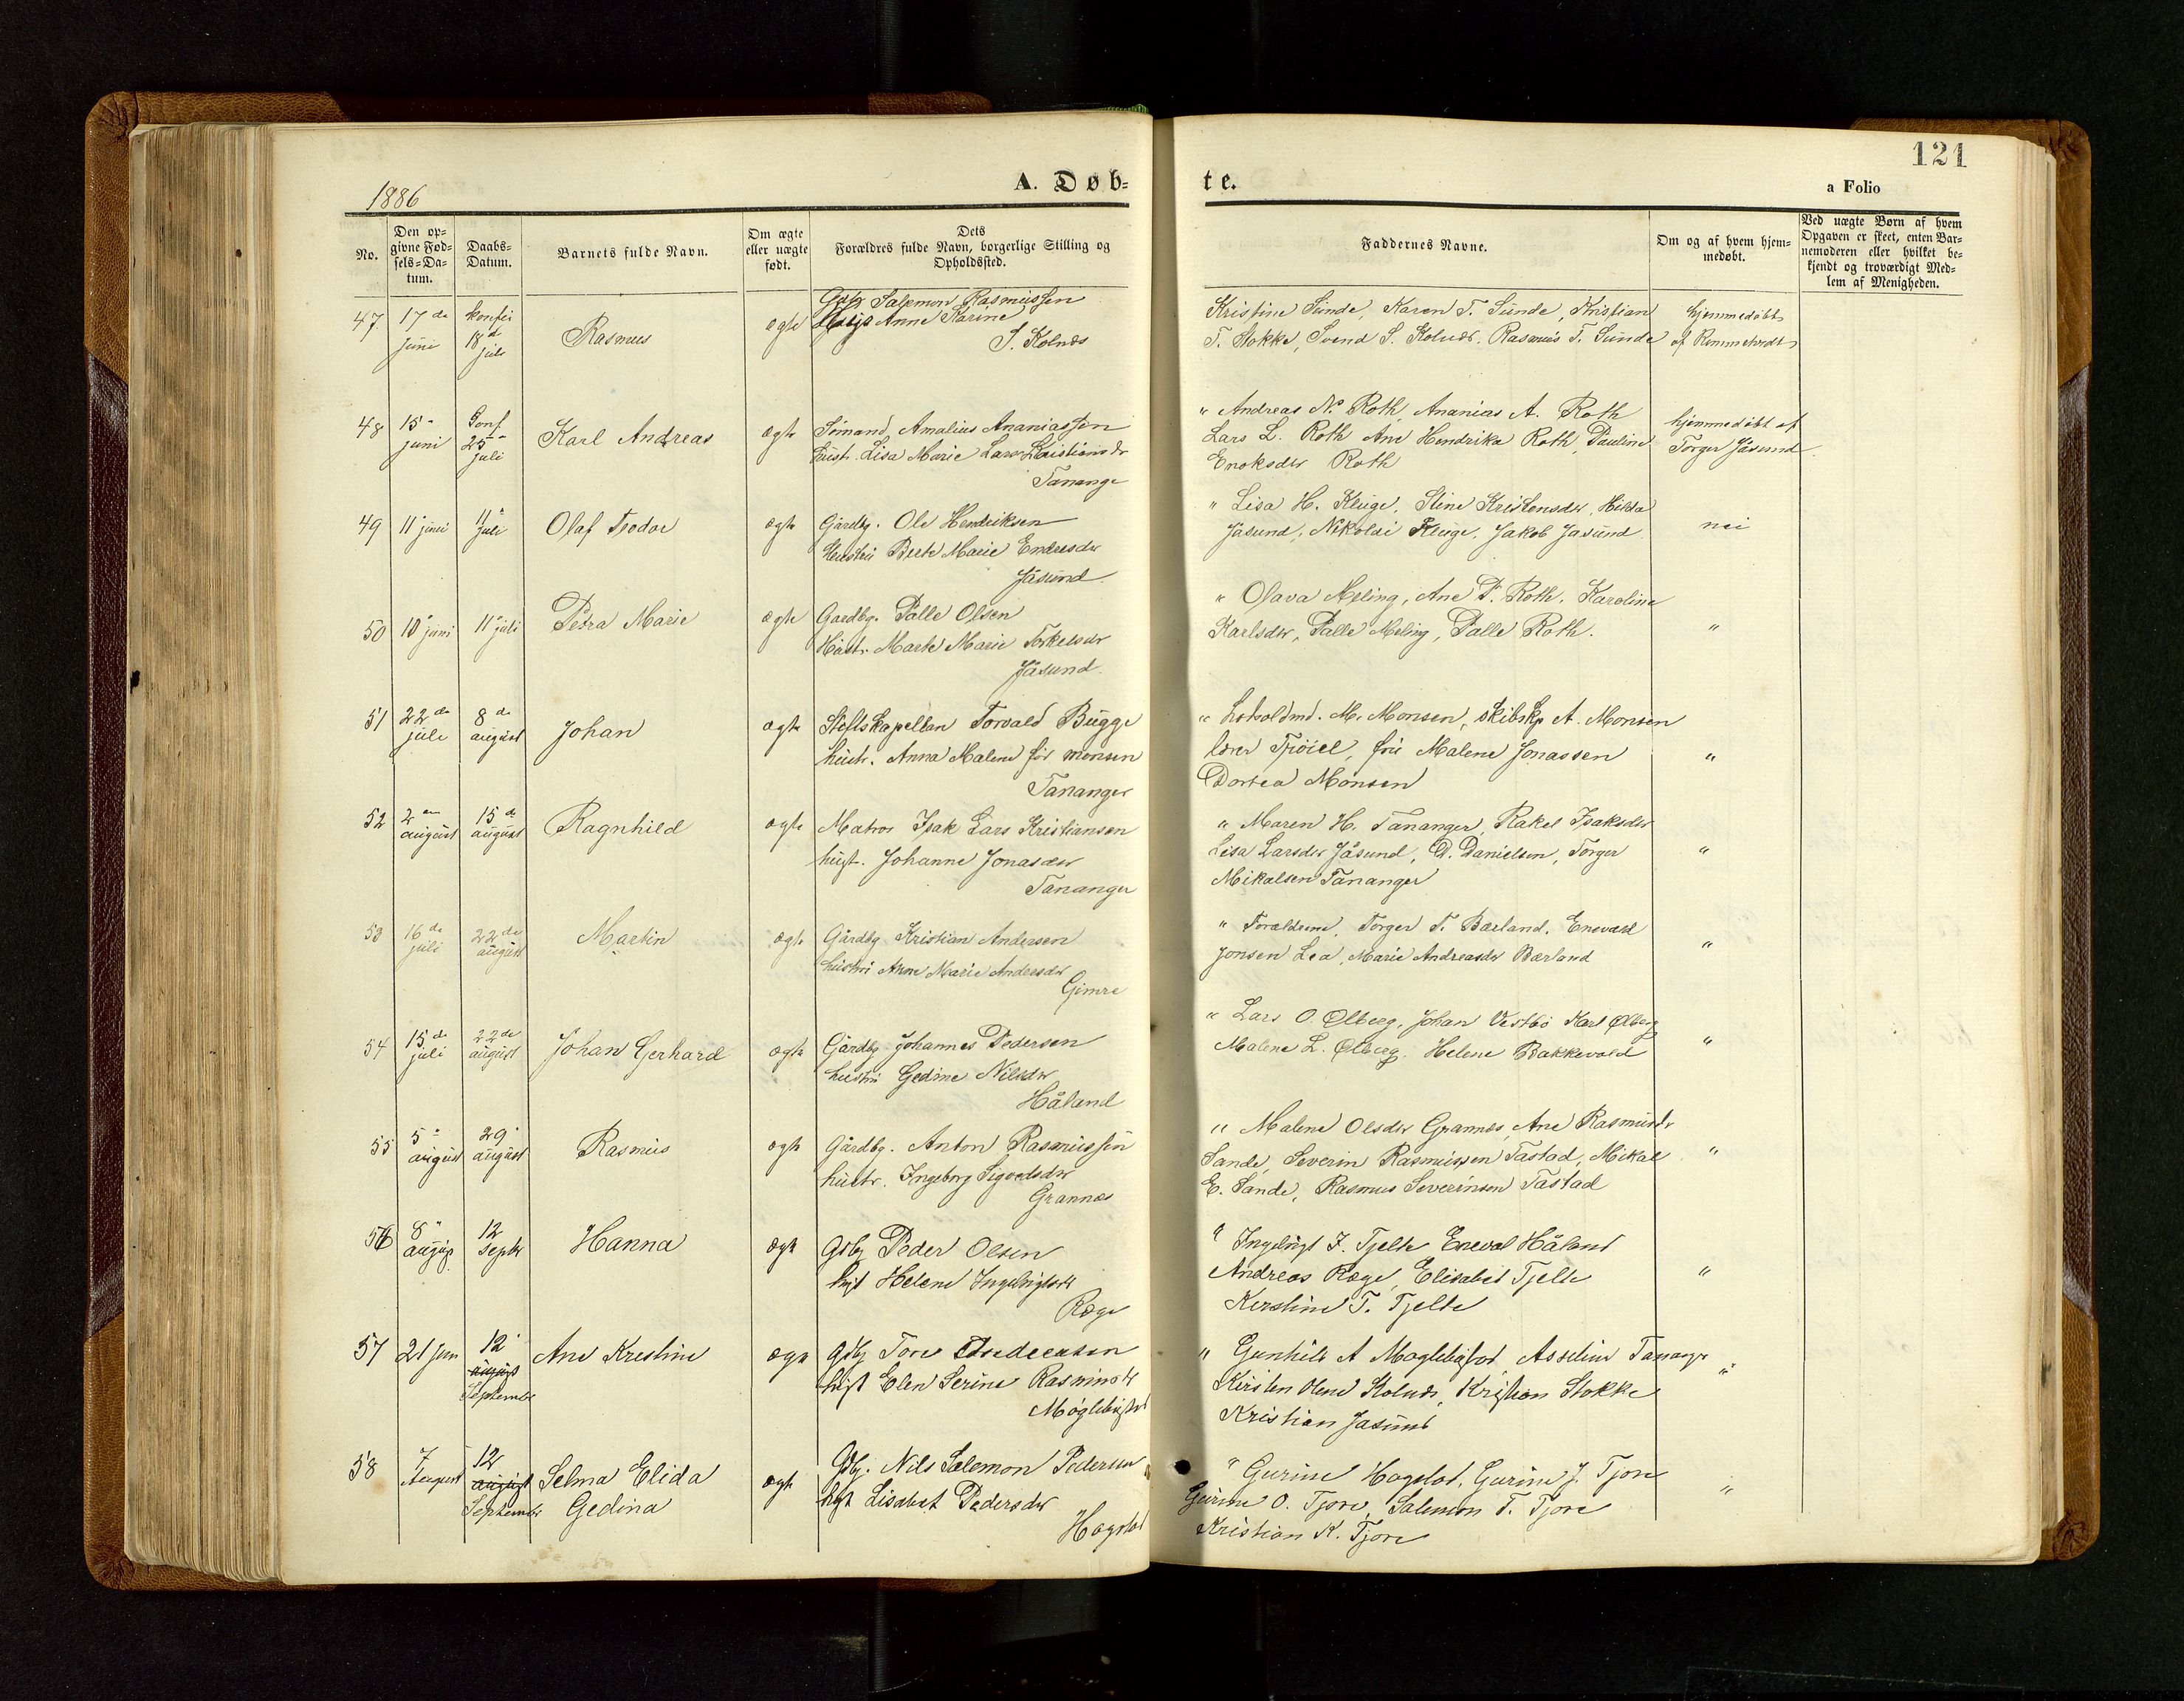 121
1886
A. Døb-
te.
a Folio
No.
Den op-
givne Fød-
sels-Da-
tum.
Daabs-
Datum.
Barnets fulde Navn.
Om ægte
eller uægte
født.
Dets
Forældres fulde Navn, borgerlige Stilling og
Opholdssted.
Faddernes Navne.
Om og af hvem hjem-
medøbt.
Ved uægte Børn af hvem
Opgaven er skeet, enten Bar-
nemoderen eller hvilket be-
kjendt og troværdigt Med-
lem af Menigheden.
47 17 de juni
18 de juli
Rasmus
ægte
Salemon Rasmussen
Anne Karine
Kristine Sunde, Karen T. Sunde, Kristian
T. Stokke, Svend S. Kolnæs. Rasmus T. Sunde
hjemmedøbt
af
48 15 juni
Conf 25 juli
Karl Andreas
ægte
Sømand Amalius Ananiassen
Lisa Marie
Tananger
" Andreas N. Roth Ananias A. Roth
Lars L. Roth Ane Hendrike Roth, Pauline
Enoksdtr Roth
hjemmedøbt af
Torger Jåsund
49 11 juni
11 juli
Olaf Teodor
ægte
Gårdbg. Ole Hendriksen
Hustru Berte Marie Endresdtr
Jåsund
" Lisa H. Kluge, Stine Kristensdtr, Hilda
Jåsund, Nikolai Kluge, Jakob Jasund
nei
50 10 juni
11 juli
Petra Marie
ægte
Gaardbg. Palle Olsen
Hustr. Marte Marie Torkelsdtr
Jåsund
" Olava Meling, Ane P. Roth. Karoline
Karlsdtr, Palle Meling, Palle Roth.
"
51 22 de juli
8 de august
Johan
ægte
Stiftskapellan Torvald Bugge
hustr. Anna Malene før monsen
Tananger
" M. Monsen, skibskp A. Monsen
lærer fru Malene Jonassen
Dortea Monsen
"
52 2 august
15 de august
Ragnhild
ægte
Matros Isak Lars Kristiansen
hust. Johanne Jonasdtr
Tananger
" Maren H. Tananger, Rakel Isaksdtr
Lisa Larsdtr Jåsund, D. Danielsen, Torger
Mikalsen Tananger
"
53 16 de juli
22 de august
Martin
ægte
Gårdbg Kristian Andersen
hustru Anne Marie Andersdtr
Gimre
" Forældrene, Torger T. Bærland. Enevald
Jonsen Lea, Marie Andreasdtr Bærland
"
54 15 de juli
22 de august
Johan Gerhard
ægte
Gårdbg Johannes Pedersen
hustru Gedine Nilsdtr
Håland
" Lars O. Ølberg, Johan Vestbø Karl Ølberg
Malene L. Ølberg, Helene Bakkevold
"
55 5 august
29 august
Rasmus
ægte
Gårdbg. Anton Rasmussen
hustr. Ingeborg Sigvedsdtr
Grannæs
" Malene Olsdtr Grannes, Ane Rasmusdtr
Sande, Severin Rasmussen Tastad, Mikal
E. Sande, Rasmus Severinsen Tastad
"
56 8 august
12 septbr
Hanna
ægte
Gdbg Peder Olsen
hust Helene Ingebrigtsdtr
Røge
" Ingebrigt I. Tjelte Eneval Håland
Andreas Røge, Elisabet Tjelte
Kirstine T. Tjelte
"
57 21 juni
12 august September
Ane Kristine
ægte
Gdbg Tore
hust Elen Serine Rasmusdtr
Møglebustad
" Gunhild A Møglebustad, Asseline Tananger
Kirsten Olene Kolnæs, Kristian Stokke
Kristian Jasund
"
58 7 August
12 august September
Selma Elida
Gedina
ægte
Gdbg. Nils Salemon Pedersen
hust Lisabet Pedersdtr
Hogstad
" Gurine Hogstad, Gurine J. Tjore
Gurine O. Tjore, Salemon T. Tjore
Kristian K. Tjore
"